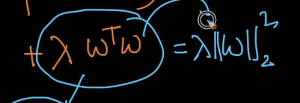 + λ wᵀw = λ||w||₂²